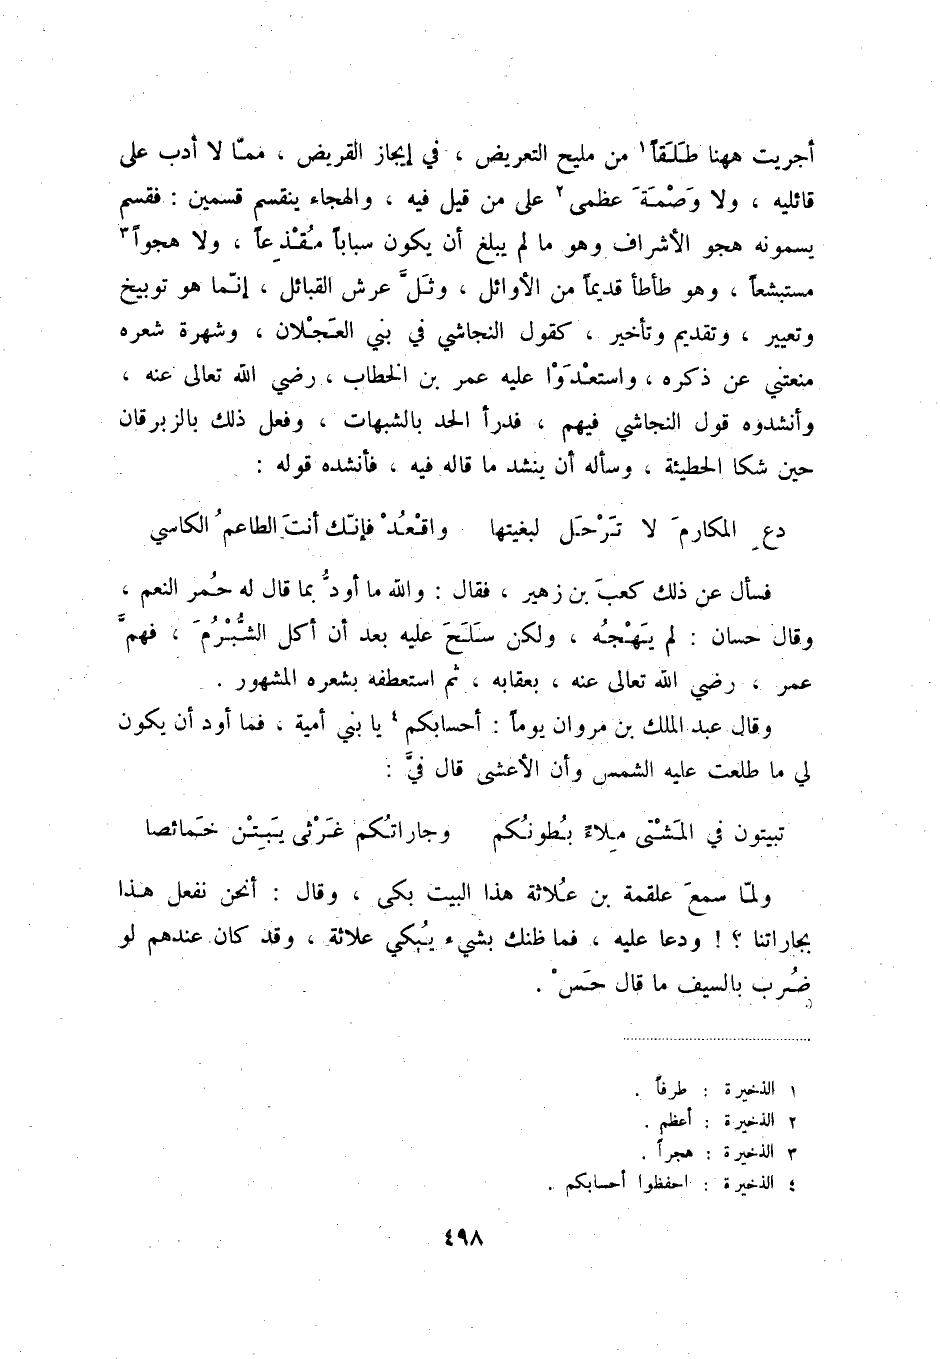 أجريت ههنا طَلَقاً١ من مليح التعريض ، في إيجاز القريض ، ممّا لا أدب على
قائليه ، ولا وَصْمَةَ عظمى٢ على من قيل فيه ، والهجاء ينقسم قسمين : فقسم
يسمونه هجو الأشراف وهو ما لم يبلغ أن يكون سباباً مُقْذِعاً ، ولا هجواً٣
مستبشعاً ، وهو طأطأ قديماً من الأوائل ، وثَلَّ عرش القبائل ، إنّما هو توبيخ
وتعيير ، وتقديم وتأخير ، كقول النجاشي في بني العَجْلان ، وشهرة شعره
منعتني عن ذكره ، واستعْدَوْا عليه عمر بن الخطاب ، رضي الله تعالى عنه ،
وأنشدوه قول النجاشي فيهم ، فدرأ الحد بالشبهات ، وفعل ذلك بالزبرقان
حين شكا الحطيئة ، وسأله أن ينشد ما قاله فيه ، فأنشده قوله :
دعِ المكارمَ لا تَرْحَل لبغيتها واقْعُدْ فإنّك أنتَ الطاعمُ الكاسي
فسأل عن ذلك كعبَ بن زهير ، فقال : والله ما أودُّ بما قال له حُمر النعم ،
وقال حسان : لم يَهْجُه ، ولكن سَلَحَ عليه بعد أن أكل الشُّبْرُمَ ، فهمَّ
عمر ، رضي الله تعالى عنه ، بعقابه ، ثم استعطفه بشعره المشهور .
وقال عبد الملك بن مروان يوماً : أحسابكم٤ يا بني أمية ، فما أود أن يكون
لي ما طلعت عليه الشمس وأن الأعشى قال فيَّ :
تبيتون في المَشْتى مِلاءً بُطونُكم وجاراتُكم غَرْثى يَبِتْن خَمائصا
ولمّا سمعَ علقمة بن عُلاثة هذا البيت بكى ، وقال : أنحن نفعل هذا
بجاراتنا ؟! ودعا عليه ، فما ظنك بشيء يُبكي علاثة ، وقد كان عندهم لو
ضُرب بالسيف ما قال حَسْ .
١ الذخيرة : طرفاً .
٢ الذخيرة : أعظم .
٣ الذخيرة : هجراً .
٤ الذخيرة : احفظوا أحسابكم .
٤٩٨